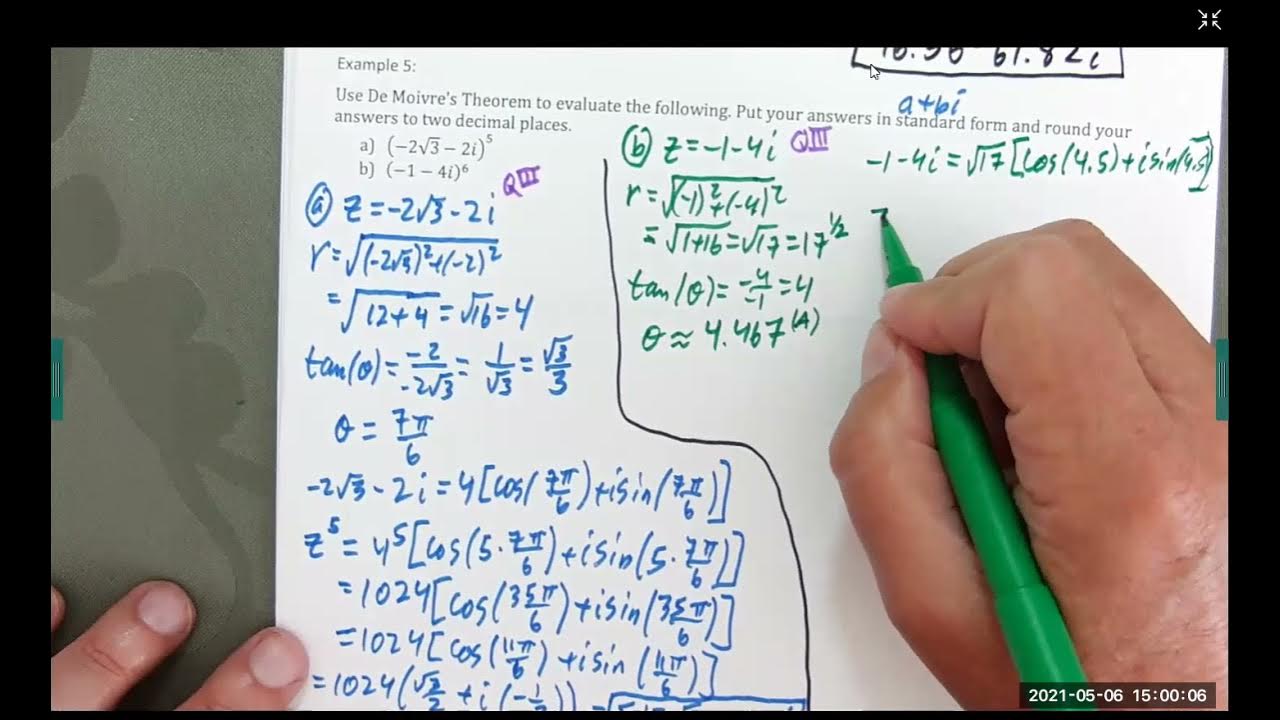 Example 5:
Use De Moivre's Theorem to evaluate the following. Put your answers in standard form and round your
answers to two decimal places.
a) (-2√3 - 2i)^5
b) (-1 - 4i)^6
a+bi
(a) z = -2√3 - 2i QIII
r = √((-2√3)^2 + (-2)^2)
= √(12+4) = √16 = 4
tan(θ) = -2/-2√3 = 1/√3 = √3/3
θ = 7π/6
-2√3 - 2i = 4[cos(7π/6) + i sin(7π/6)]
z^5 = 4^5[cos(5·7π/6) + i sin(5·7π/6)]
= 1024[cos(35π/6) + i sin(35π/6)]
= 1024[cos(11π/6) + i sin(11π/6)]
= 1024(√3/2 + i(-1/2)) =
(b) z = -1 - 4i QIII
r = √((-1)^2 + (-4)^2)
= √(1+16) = √17 = 17^(1/2)
tan(θ) = -4/-1 = 4
θ ≈ 4.467 (A)
-1 - 4i = √17[cos(4.5) + i sin(4.5)]
2021-05-06 15:00:06